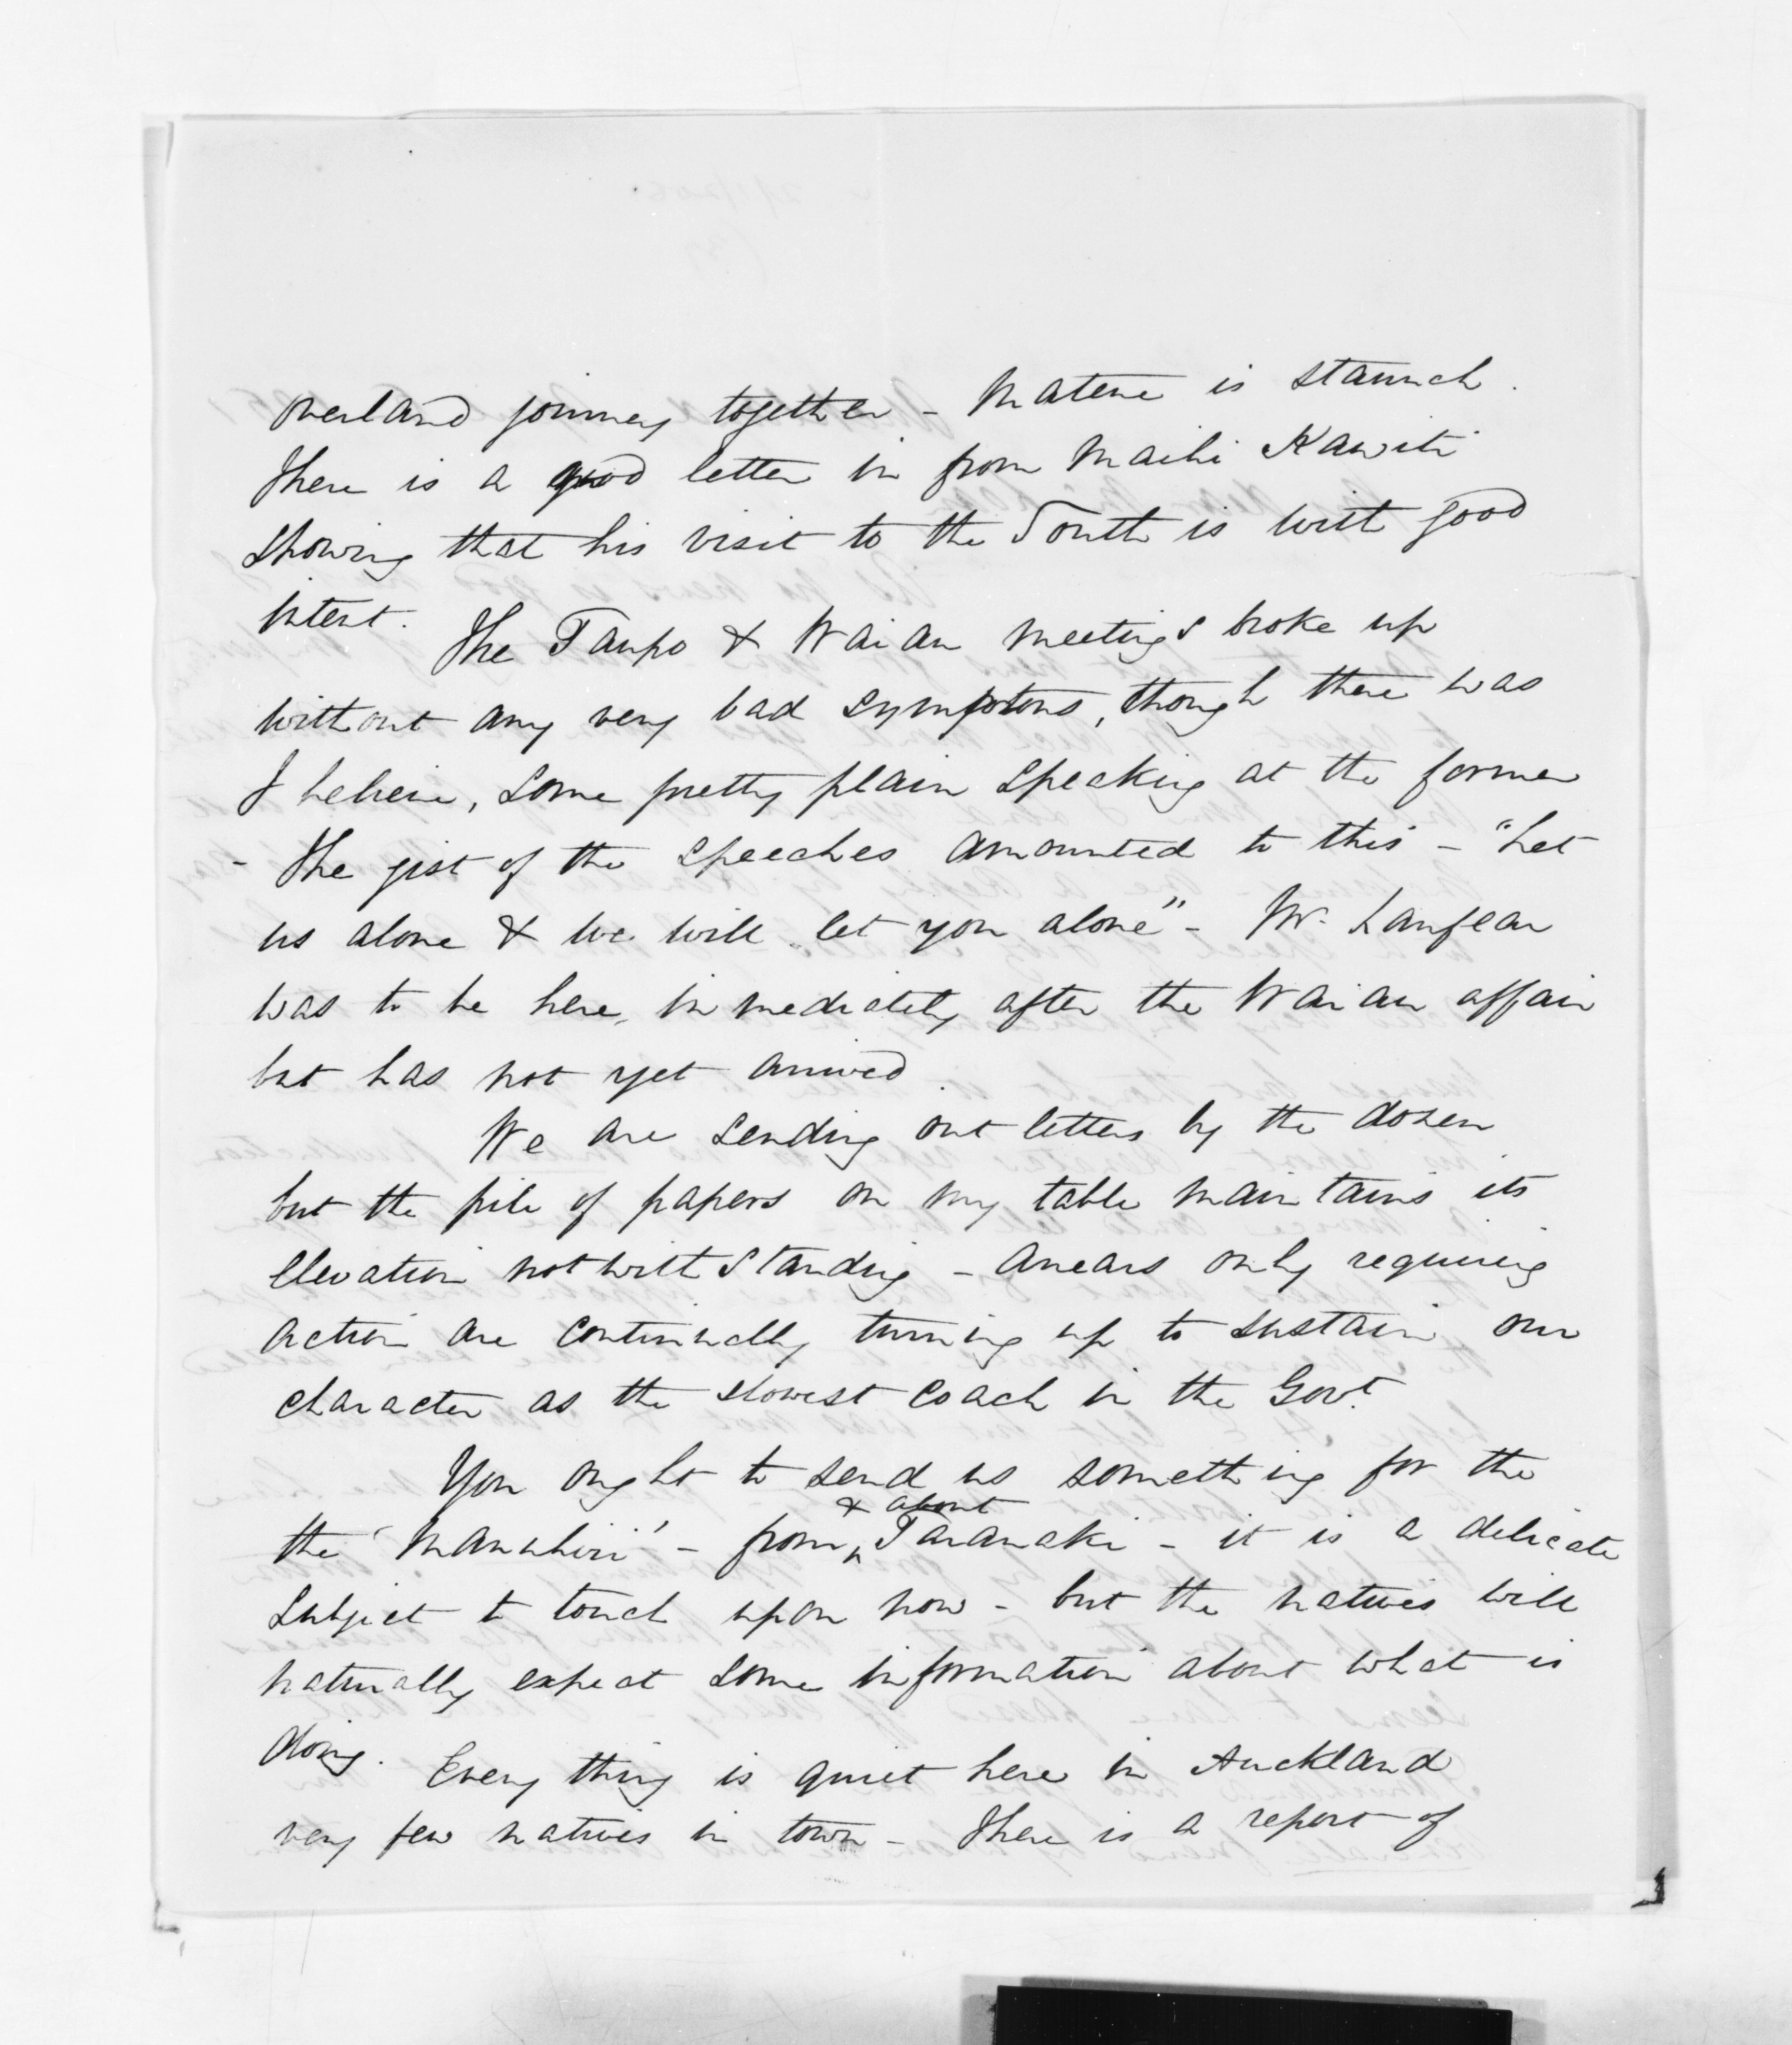 overland journey together - Matene is staunch.
There is a good letter in from Maihi Kawiti
showing that his visit to the South is with good
intent.
The Taupo & Waiau meetings broke up
without any very bad symptoms, though there was
I believe, some pretty plain speaking at the former
- The gist of the speeches amounted to this - "Let
us alone & we will let you alone" - Mr. Lanfear
was to be here, immediately after the Waiau affair
but has not yet arrived.
We are sending out letters by the dozen
but the pile of papers on my table maintains its
elevation notwithstanding - arrears only requiring
action are continually turning up to sustain our
character as the slowest coach in the Govt.
You ought to send us something for the
the 'Manuhiri' - from & about Taranaki - it is a delicate
subject to touch upon now - but the natives will
naturally expect some information about what is
doing.
Every thing is quiet here in Auckland
very few natives in town - There is a report of